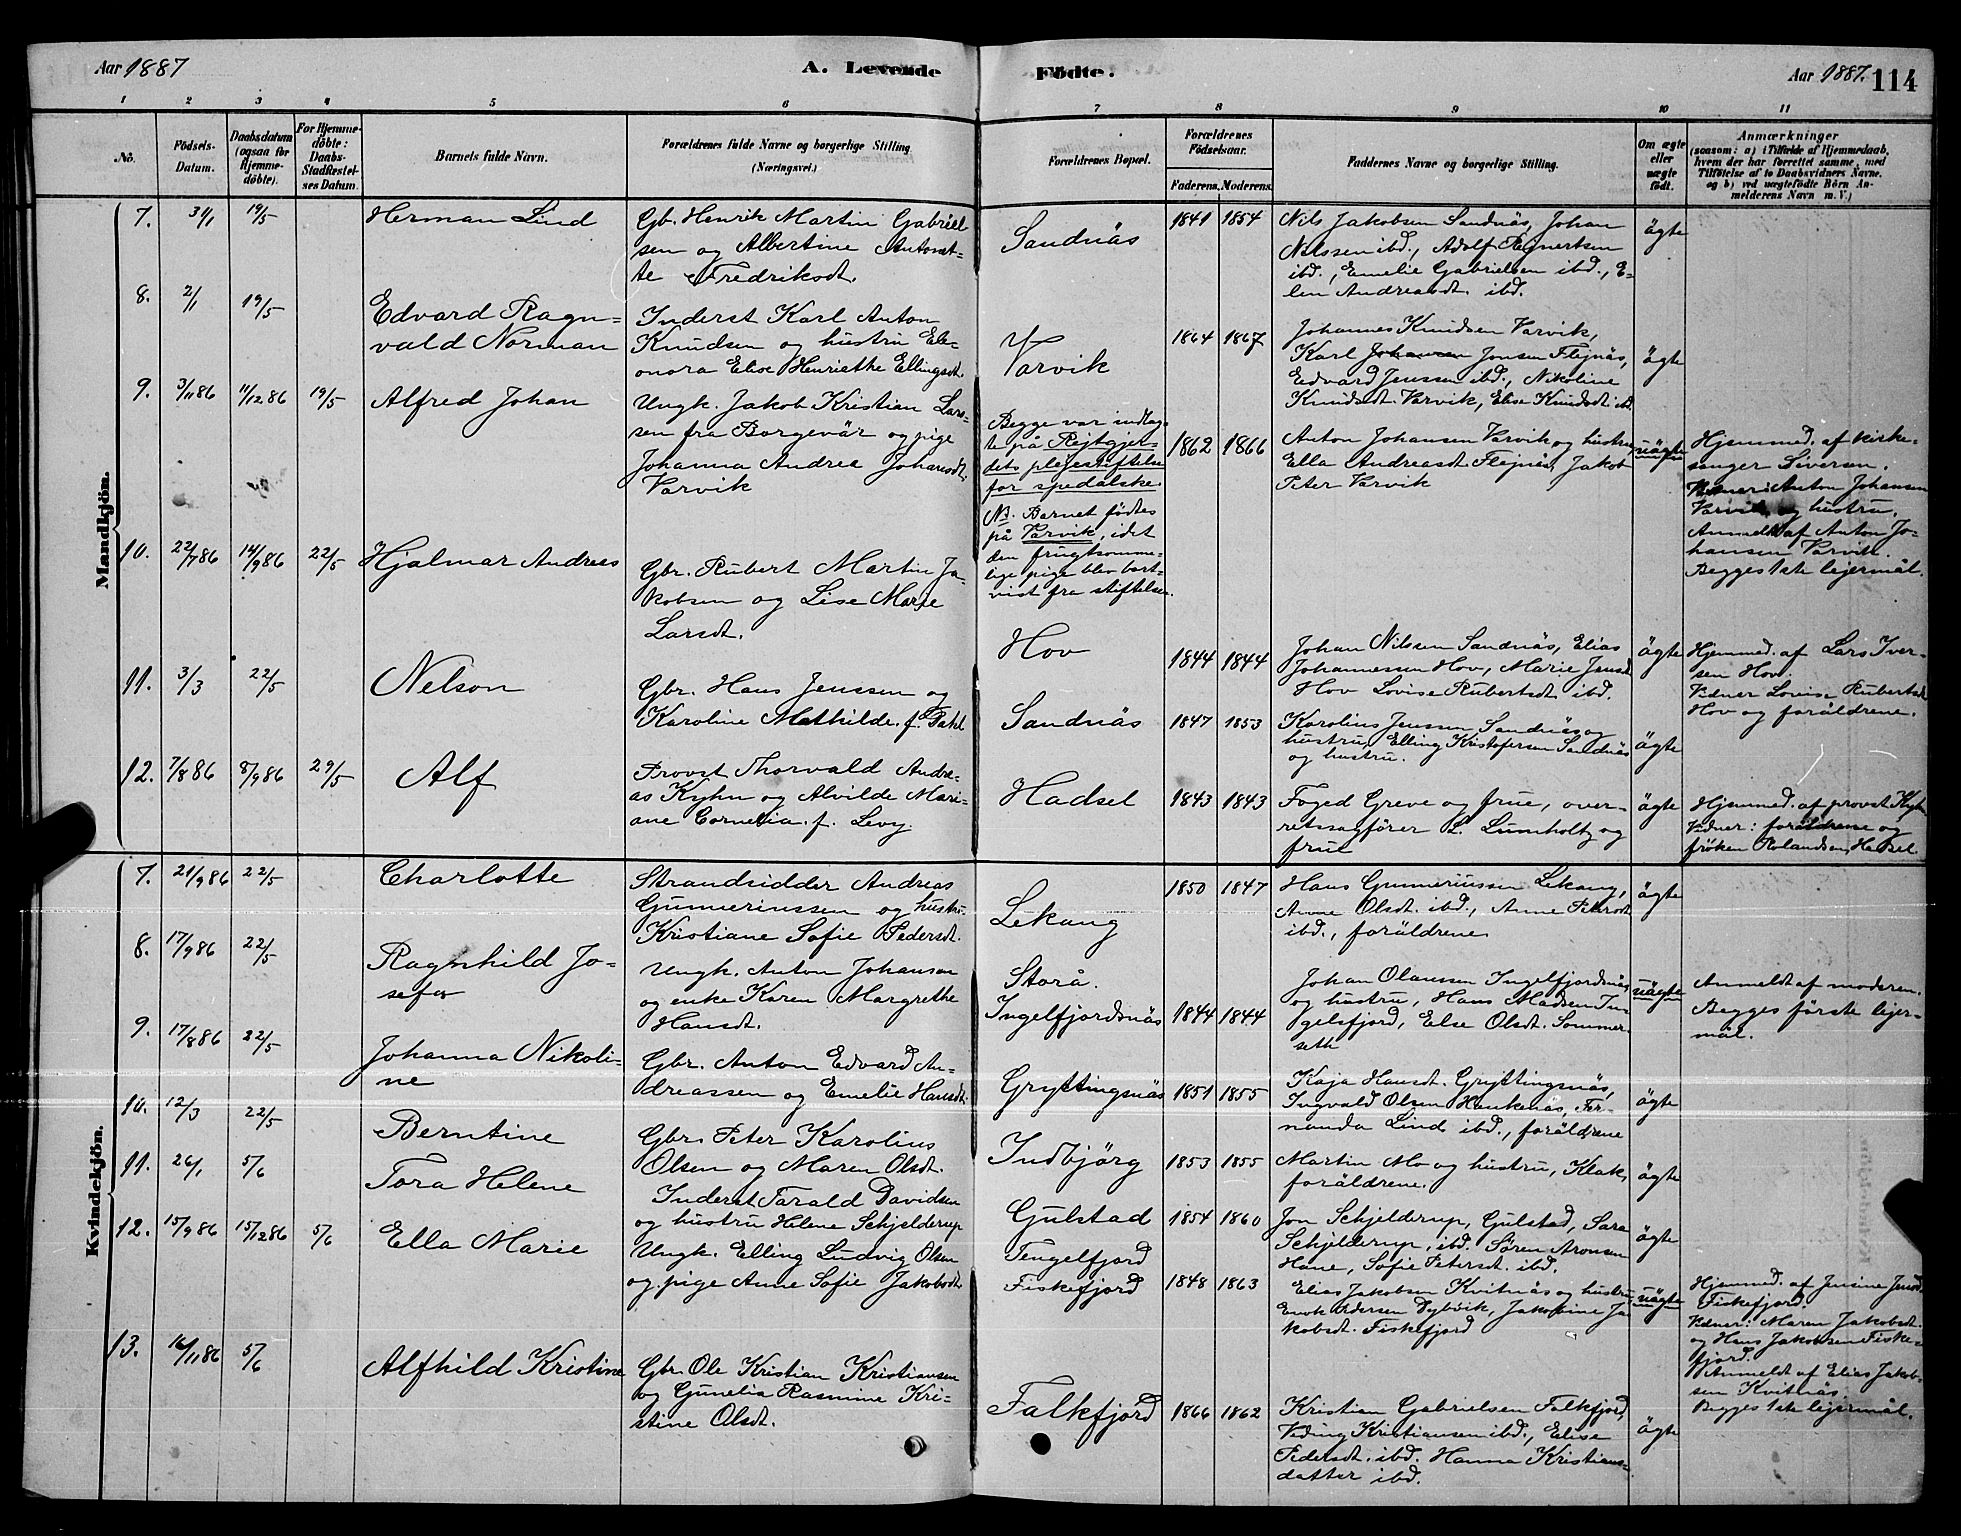 Aar 1887
A. Levende
Födte.
Aar 1887.
114
1 2 3 4 5 6 7 8 9 10 11
No.
Födsels-Datum.
Daabsdatum (ogsaa for Hjemme-döbte).
For Hjemme-döbte: Daabs-Stadfæstel-ses Datum.
Barnets fulde Navn.
Forældrenes fulde Navne og borgerlige Stilling
(Næringsvei.)
Forældrenes Bopæl.
Forældrenes Födselsaar.
Faderens. Moderens.
Faddernes Navne og borgerlige Stilling.
Om ægte eller uægte födt.
Anmærkninger
(saasom: a) i Tilfælde af Hjemmedaab,
hvem der har forrettet samme, med
Tilföielse af to Daabsvidners Navne,
og b) ved uægtefödte Börn An-
melderens Navn m. V.)
Mandkjön.
7. 31/1 19/5 Herman Lind
Gb. Henrik Martin Gabriel-
sen og Albertine Antonet-
te Fredriksdt.
Sandnäs
1841 1854
Nils Jakobsen Sandnäs, Johan
Nilssen ibd., Adolf Regnertsen
ibd., Emelie Gabrielsen ibd., E-
len Andreasdt. ibd.
ägte
8. 2/1 19/5
Edvard Ragn-
vald Norman
Inderst Karl Anton
Knudsen og hustru Ele-
onora Elise Henriethe Ellingsdt.
Varvik
1864 1867
Johannes Knudsen Varvik,
Karl Johansen Jensen Flejnäs,
Edvard Jenssen ibd., Nikoline
Knudsdt. Varvik, Elise Knudsdt. ibd.
ägte
9. 3/11 86 11/12 86 19/5 Alfred Johan
Ungk. Jakob Kristian Lars-
sen fra Borgevär og pige
Johanna Andrea Johansdt.
Varvik
Begge var indlag-
te på Rejtgjer-
dets plejestiftelse
for spedalske.
NB. Barnet födtes
på Varvik, idet
den frugtsomme-
lige pige blev bort-
vist fra stiftelsen.
1862 1866
Anton Johansen Varvik og hustru
Ella Andreasdt. Flejnäs, Jakob
Peter Varvik
uägte
Hjemmed. af kirke-
sanger Siversen.
Vidner: Anton Johansen
Varvik og hustru.
Anmeldt af Anton Jo-
hansen Varvik.
Begges 1ste lejermål.
10. 22/7 86 14/9 86 22/5 Hjalmar Andreas
Gbr. Rubert Martin Ja-
kobsen og Lise Marie
Larsdt.
Hov
1844 1844
Johan Nilsen Sandnäs, Elias
Johannessen Hov, Marie Jensdt.
Hov Lovise Rubertsdt. ibd.
ägte
Hjemmed. af Lars Iver-
sen Hov.
Vidner Lovise Rubertsdt.
Hov og foräldrene.
11. 3/3 22/5 Nelson
Gbr. Hans Jenssen og
Karoline Mathilde f. Dahl
Sandnäs
1847 1853
Karolius Jenssen Sandnäs og
hustru, Elling Kristofersen Sandnäs
og hustru.
ägte
12. 7/8 86 8/9 86 29/5 Alf
Provst Thorvald Andre-
as Kyhn og Alvilde Mari-
ane Cornelia f. Levy
Hadsel
1843 1843
Foged Greve og frue, over-
retssagförer L. Lumholtz og
frue
ägte
Hjemmed. af provst Kyhn
Vidner: foräldrene og
fröken Rolandsen, Hadsel
Kvindekjön.
7. 21/9 86 22/5 Charlotte
Strandsidder Andreas
Gunneriussen og hustru
Kristiane Sofie Pedersdt.
Lekang
1850 1847
Hans Gunneriussen Lekang,
Anne Olsdt. ibd., Anne Petersdt.
ibd., foräldrene
ägte
8. 17/9 86 22/5
Ragnhild Jo-
sefa
Ungk. Anton Johansen
og enke Karen Margrethe
Hansdt.
Storå.
Ingelfjordsnäs
1844 1844
Johan Olaussen Ingelfjordsnäs
og hustru, Hans Madsen In-
gelsfjord, Else Olsdt. Sommer-
seth
uägte
Anmeldt af moderen.
Begges förste lejer-
mål.
9. 17/8 86 22/5
Johanna Nikoli-
ne
Gbr. Anton Edvard An-
dreassen og Emelie Hansdt.
Gryttingsnäs
1851 1855
Kaja Hansdt. Gryttingsnäs,
Ingvald Olsen Hankenäs, Fer-
nanda Lind ibd., foräldrene
ägte
10. 12/3 22/5 Berntine
Gbr. Peter Karolius
Olsen og Maren Olsdt.
Indbjörg
1853 1855
Martin Mo og hustru, Klak,
foräldrene.
ägte
11. 26/1 5/6 Tora Helene
Inderst Tarald Davidsen
og hustru Helene Schjelderup
Gulstad
1854 1860
Jon Schjelderup, Gulstad, Sara
Schjelderup, ibd. Sören Aronsen
Hane, Sofie Petersdt. ibd.
ägte
12. 15/9 86 15/12 86 5/6 Ella Marie
Ungk. Elling Ludvig Olsen
og pige Anne Sofie Jakobsdt.
Tengelfjord
Fiskefjord
1848 1863
Elias Jakobsen Kvitnäs og hustru,
Enok Pedersen Dybvik, Jakobine Ja-
kobsdt. Fiskefjord
uägte
Hjemmed. af Jensine Jensdt.
Fiskefjord.
Vidner: Maren Jakobsdt.
og Hans Jakobsen Fiske-
fjord.
Anmeldt af Elias Jakob-
sen Kvitnäs.
Begges 1ste lejermål.
13. 16/11 86 5/6 Alfhild Kristine
Gbr. Ole Kristian Kristiansen
og Gunelia Rasmine Kri-
stine Olsdt.
Falkfjord
1866 1862
Kristian Gabrielsen Falkfjord,
Viding Kristiansen ibd., Elise
Pedersdt. ibd. Hanna Kristians-
datter ibd.
ägte